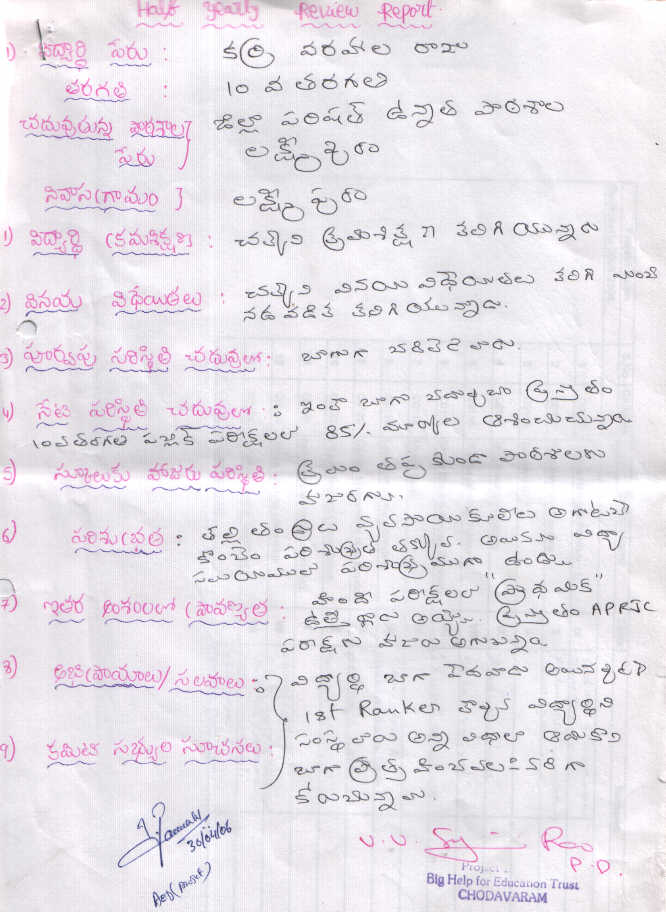 Half yearly Review Report.
1) విద్యార్ధి పేరు : కర్రి వరహాల రాజు
తరగతి : 10 వ తరగతి
చదువుచున్న పాఠశాల జిల్లా పరిషత్ ఉన్నత పాఠశాల
పేరు లక్ష్మీపురం
నివాసగ్రామం లక్ష్మీపురం
1) విద్యార్ధి క్రమశిక్షణ : చక్కని క్రమశిక్షణ కలిగి యున్నాడు
2) వినయ విధేయతలు : చక్కని వినయ విధేయతలు కలిగి మంచి
నడవడిక కలిగియున్నాడు.
3) పూర్వపు పరిస్థితి చదువులో : బాగుగా చదివెడివాడు.
4) నేటి పరిస్థితి చదువులో : ఇంకా బాగా ప్రస్తుతం
10వ తరగతి పబ్లిక్ పరీక్షలలో 85% మార్కులు ఆశించుచున్నాడు
5) స్కూలుకు హాజరు పరిస్థితి : క్రమం తప్పకుండా పాఠశాలకు
హాజరగును.
6) పరిశుభ్రత : తల్లి తండ్రులు వ్యవసాయ కూలీలు అగుటచే
కొంచెం పరిశుభ్రత తక్కువ. అయినను విద్యా
సమయములో పరిశుభ్రముగా ఉండును.
7) ఇతర అంశాలలో ప్రావీణ్యత : హిందీ పరీక్షలలో "ప్రాథమిక్"
ఉత్తీర్ణుడు అయ్యెను. ప్రస్తుతం APRJC
పరీక్షకు హాజరు అగుచున్నాడు
8) అభిప్రాయాలు/సలహాలు : విద్యార్థి బాగా పేదవాడు అయినప్పటికీ
1st Ranker కావున విద్యార్థిని
9) కమిటి సభ్యుల సూచనలు : సంస్థ వారు అన్ని విధాలా ఆదుకొని
బాగా ప్రోత్సహించవలసినదిగా
కోరుచున్నాను.
30/04/06
V. V. Rao
P.D.
Project
Big Help for Education Trust
CHODAVARAM